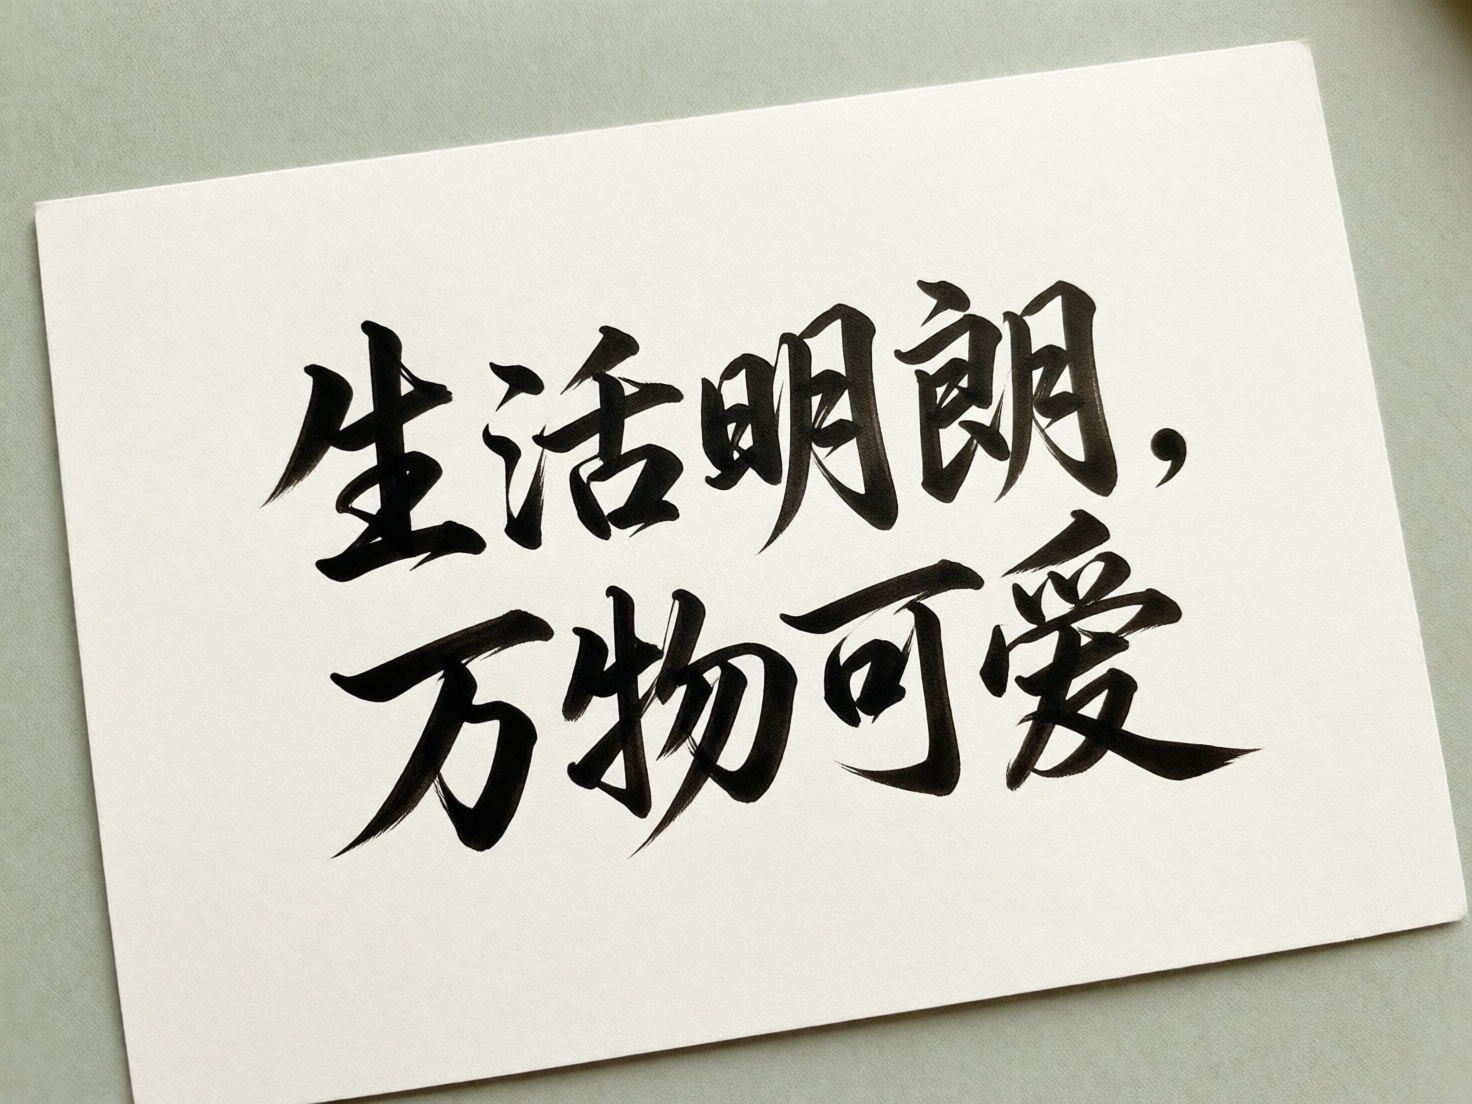 生活明朗，
万物可爱